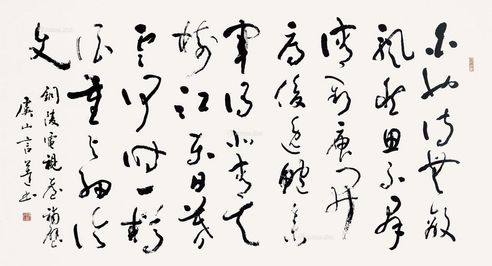 白也詩無敵
飄然思不群
清新庾開
府俊逸鮑參
軍渭北春天
樹江東日暮
雲何時一樽
酒重与細論
文
銅陵電視台補壁
虞山言恭達書